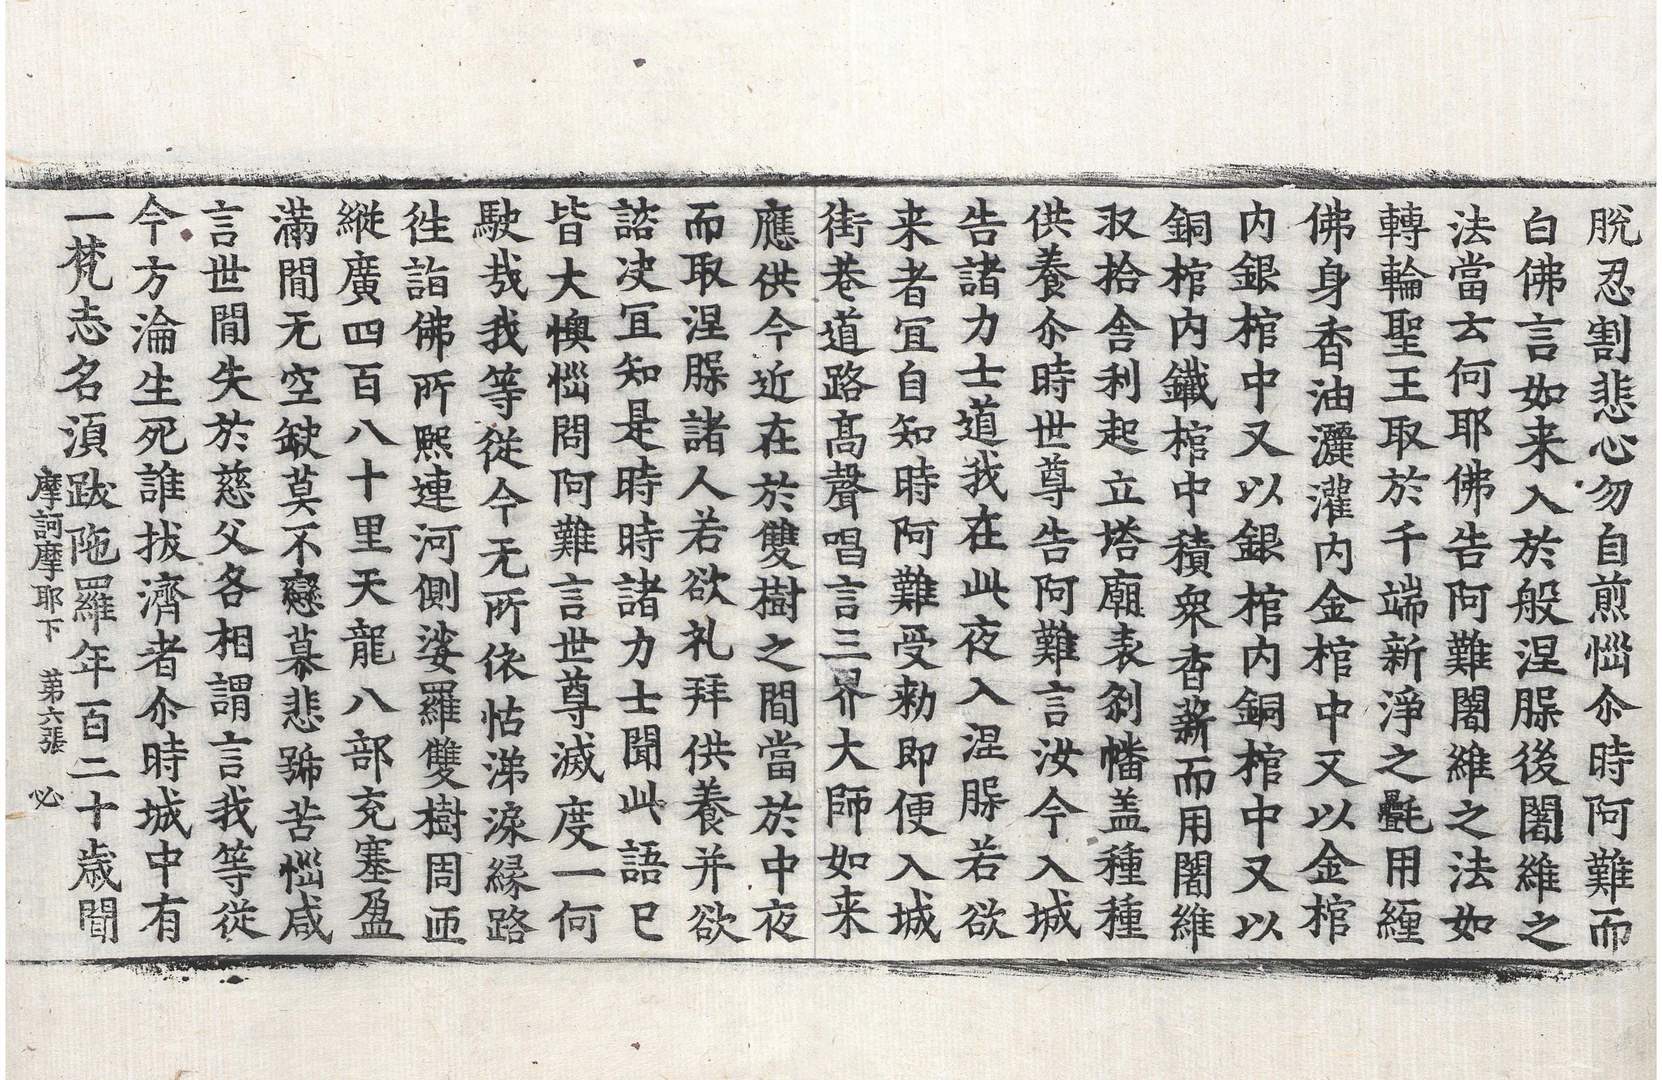 脫忍割悲心勿自煎惱尒時阿難而
白佛言如来入於般涅槃後闍維之
法當云何耶佛告阿難闍維之法如
轉輪聖王取於千端新淨之㲲用纏
佛身香油灑灌内金棺中又以金棺
内銀棺中又以銀棺内銅棺中又以
銅棺内鐵棺中積衆香薪而用闍維
収拾舍利起立塔廟表剎幡盖種種
供養尒時世尊告阿難言汝今入城
告諸力士道我在此夜入涅槃若欲
来者冝自知時阿難受勑即便入城
街巷道路髙聲唱言三界大師如来
應供今近在於雙樹之間當於中夜
而取涅槃諸人若欲礼拜供養并欲
諮决冝知是時時諸力士聞此語已
皆大懊惱問阿難言世尊滅度一何
駛㢤我等從今无所依怙涕淚緣路
徃詣佛所熈連河側娑羅雙樹周迊
縱廣四百八十里天龍八部充塞盈
滿間无空缺莫不戀慕悲號苦惱咸
言世間失於慈父各相謂言我等從
今方淪生死誰拔濟者尒時城中有
一梵志名湏跋陁羅年百二十歳聞
摩訶摩耶下 第六張 必